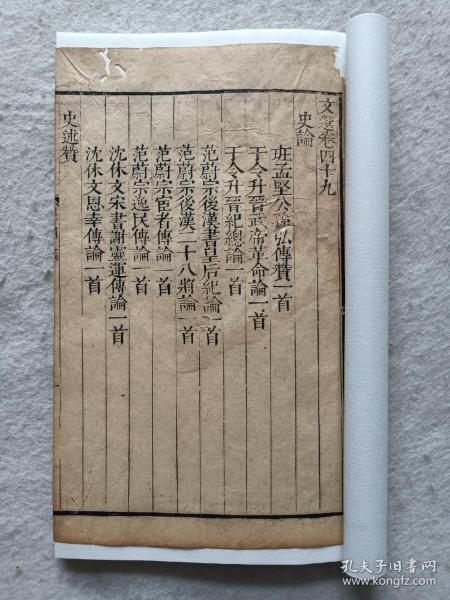 文選卷四十九
史論
班孟堅公孫弘傳贊一首
于令升晉武帝革命論一首
于令升晉紀總論一首
范蔚宗後漢書皇后紀論一首
范蔚宗後漢二十八將論一首
范蔚宗宦者傳論一首
范蔚宗逸民傳論一首
沈休文宋書謝靈運傳論一首
沈休文恩幸傳論一首
史述贊
孔夫子旧书网
www.kongfz.com